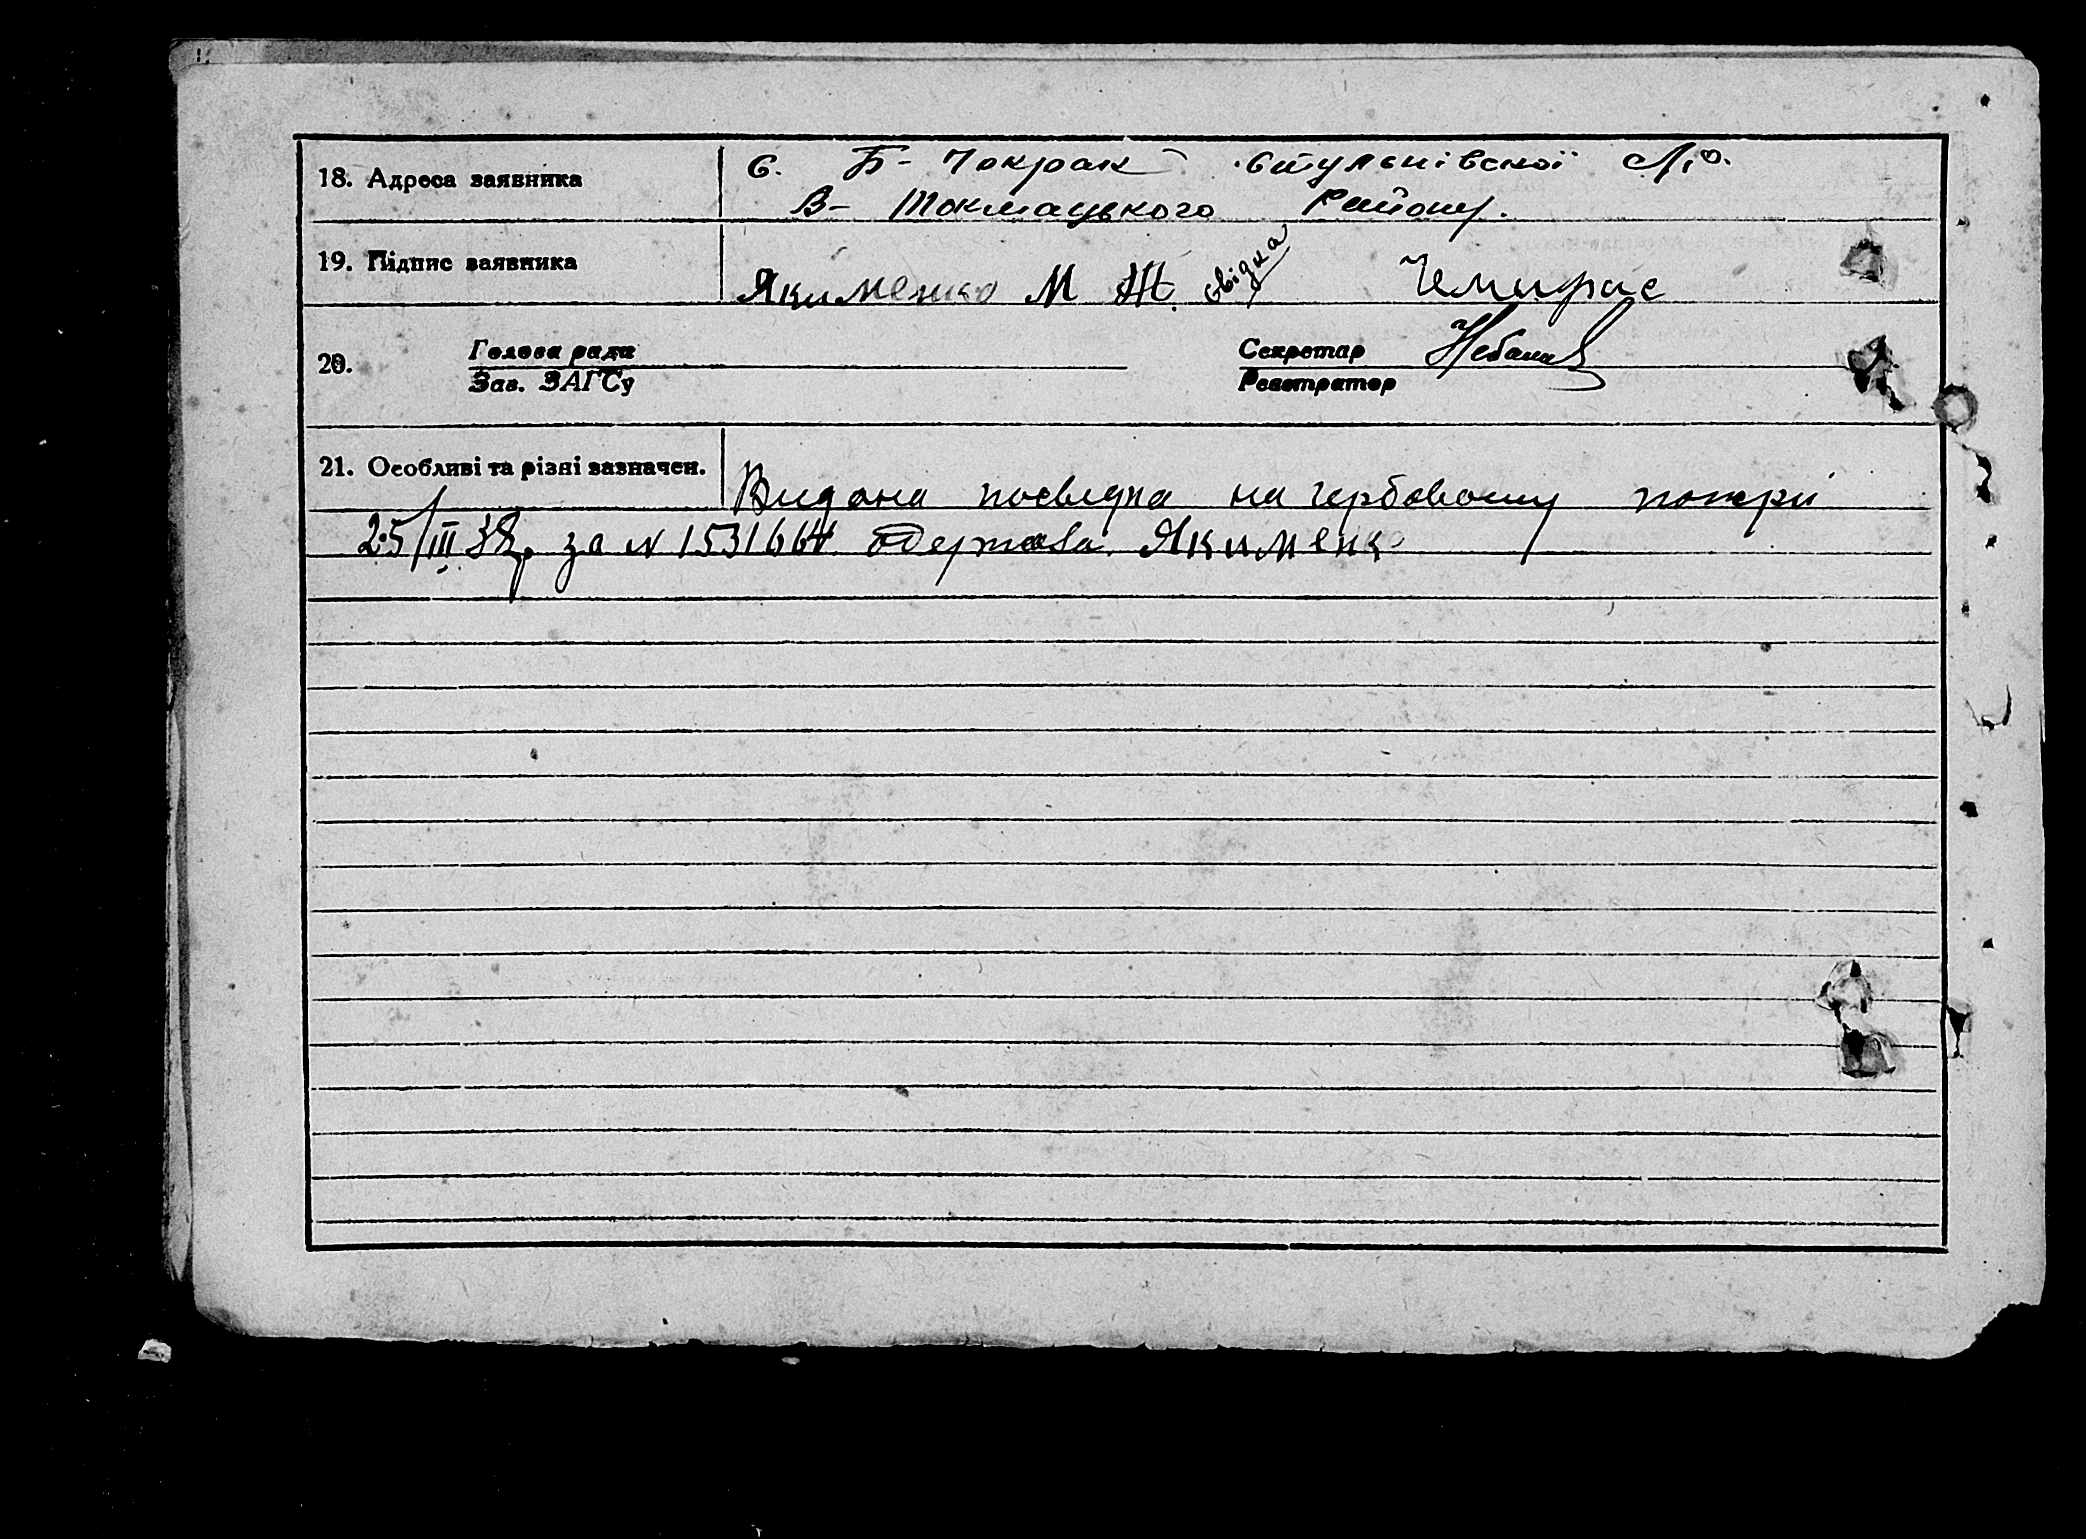 18. Адреса заявника с. Б- Чокрак стульнівської с/р.
В- Токмацького Району.
19. Підпис заявника Якименко М Ж. свідка Чемирис
20. Голова ради Секретар
Зав. ЗАГСу Реєстратор
21. Особливі та різні зазначен. Видана посвідка на гербовому папері
25/III 38р. за N 1531664 Одержава Якименко